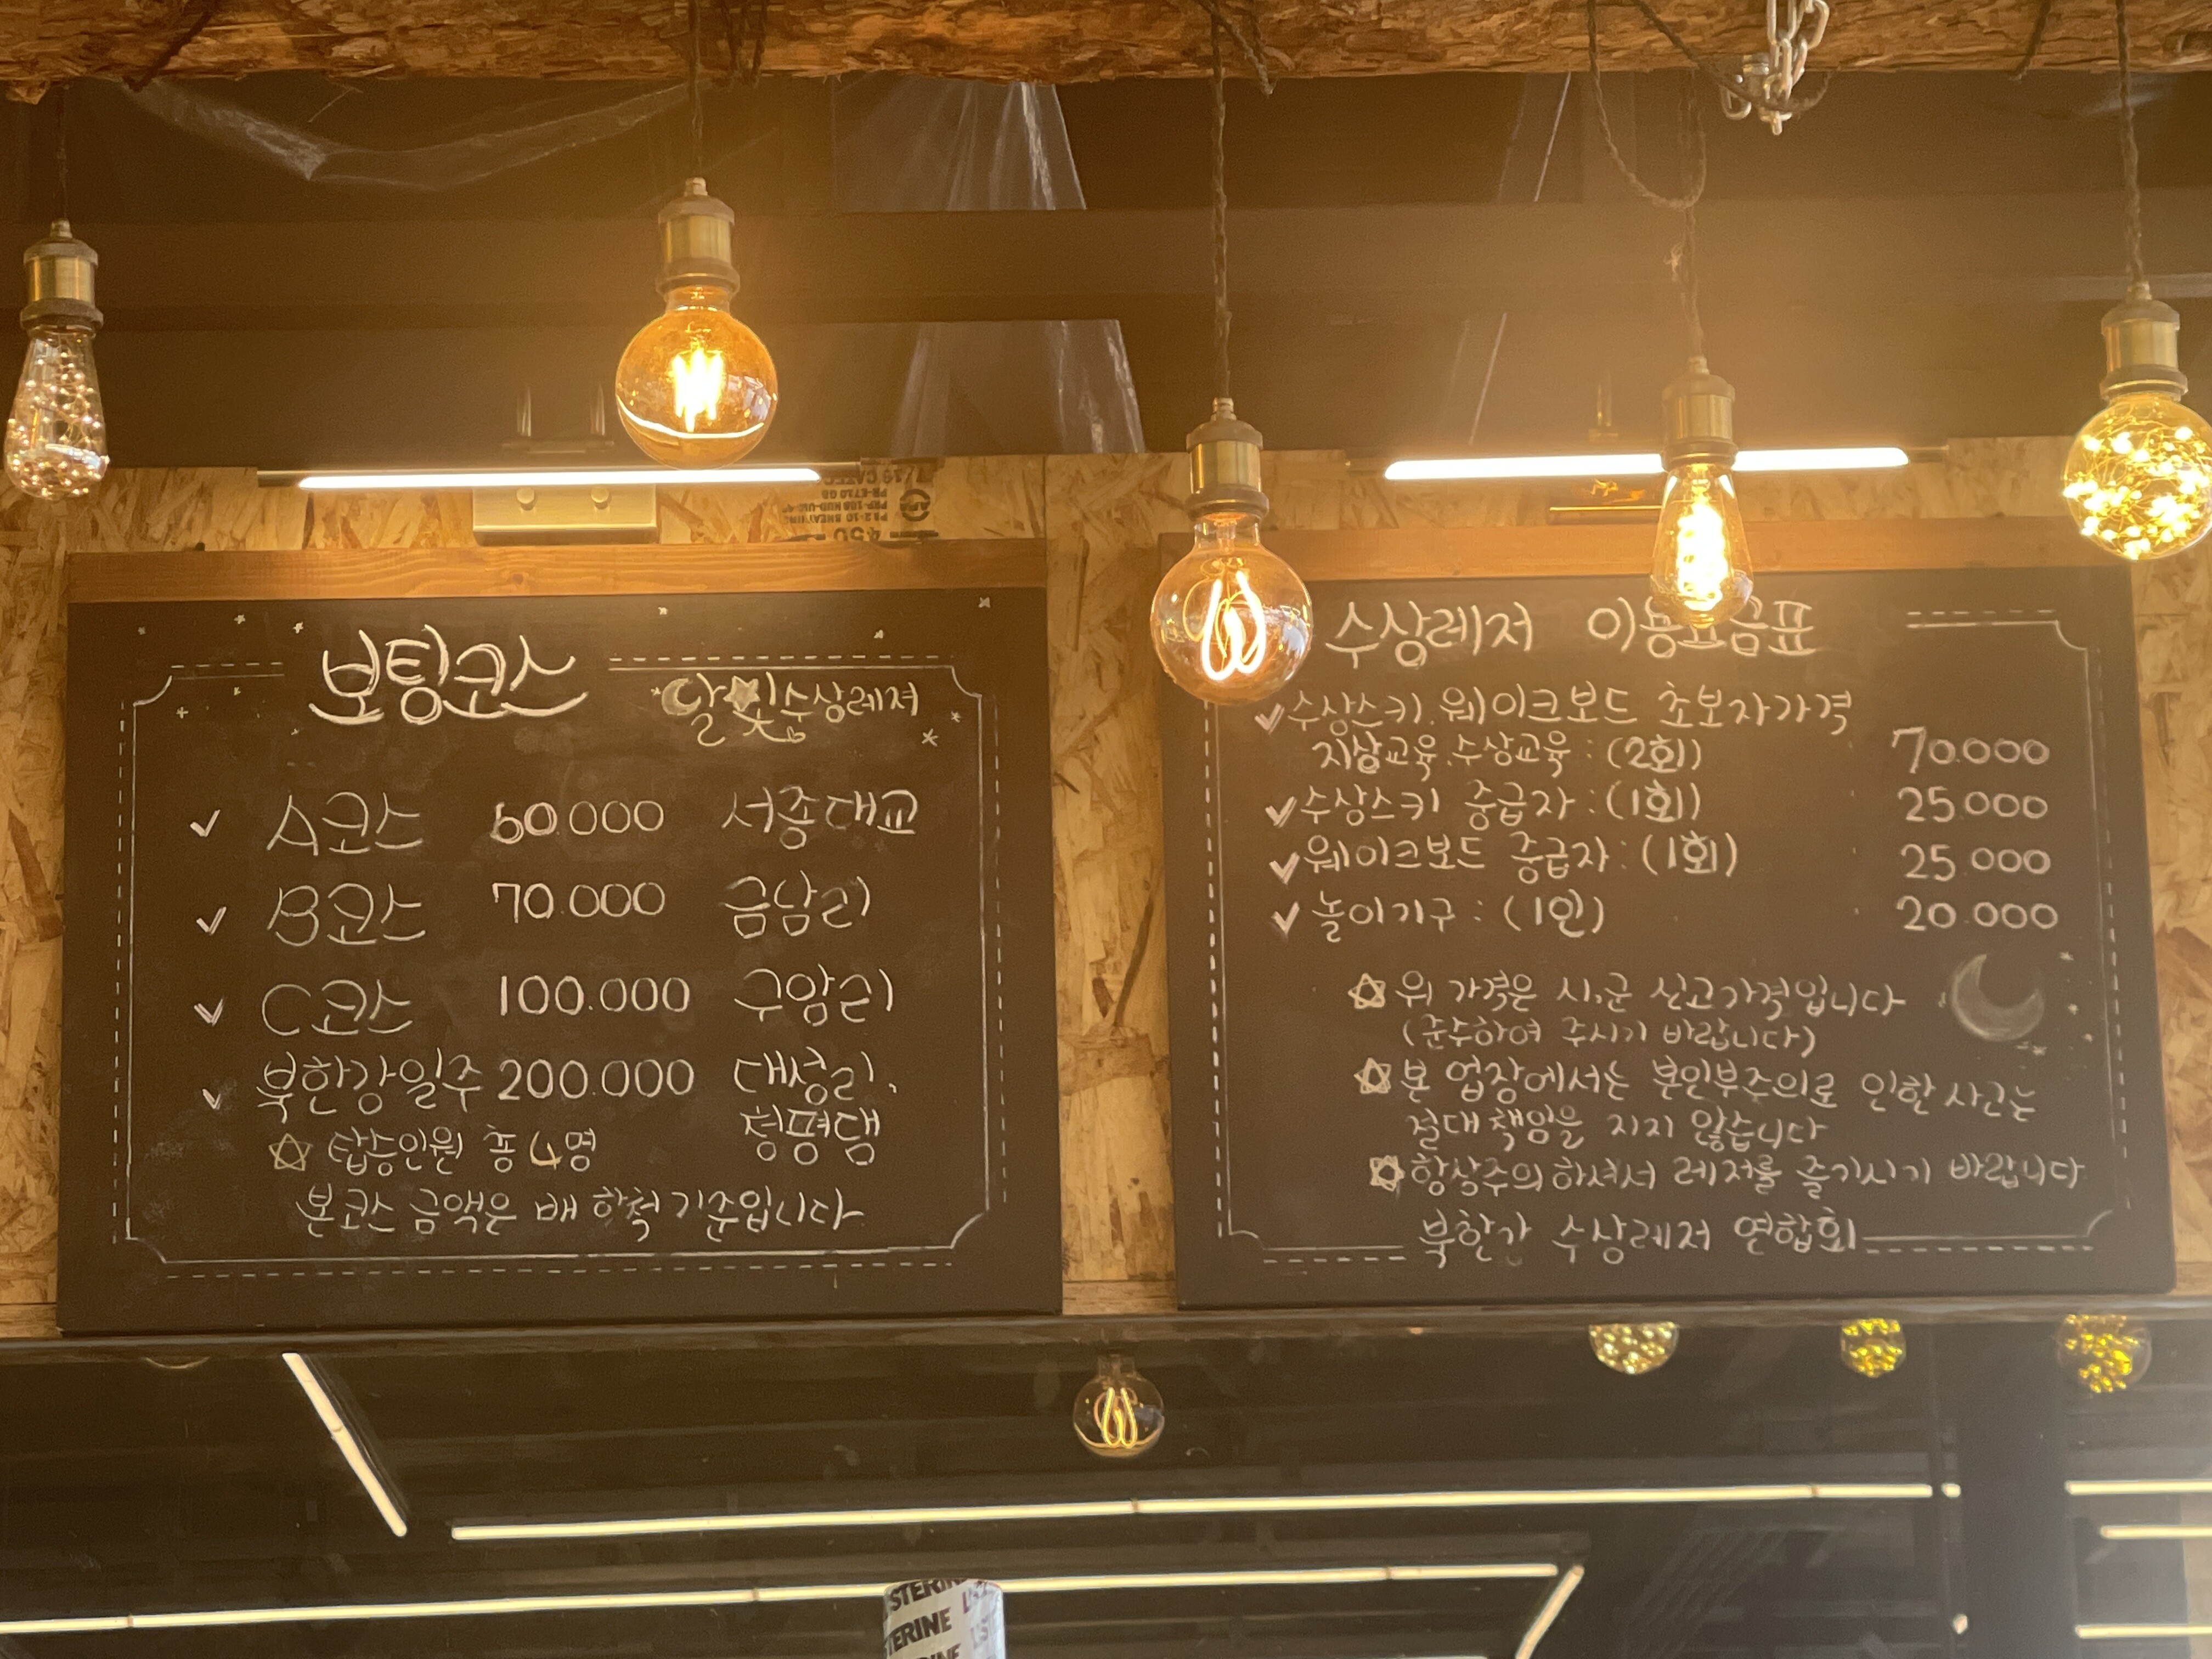 보팅코스
달빛수상레져
A코스 60.000 서종대교
B코스 70.000 금남리
C코스 100.000 구암리
북한강일주 200.000 대성리.
청평댐
탑승인원 총 4명
본코스 금액은 배 한척 기준입니다
수상레저 이용요금표
수상스키.웨이크보드 초보자가격
지상교육.수상교육 : (2회) 70.000
수상스키 중급자 : (1회) 25.000
웨이크보드 중급자 : (1회) 25.000
놀이기구 : (1인) 20.000
위 가격은 시,군 신고가격입니다
(준수하여 주시기 바랍니다)
본 업장에서는 본인부주의로 인한 사고는
절대 책임을 지지 않습니다
항상주의하셔서 레저를 즐기시기 바랍니다
북한강 수상레저 연합회
STERIN
TERINE